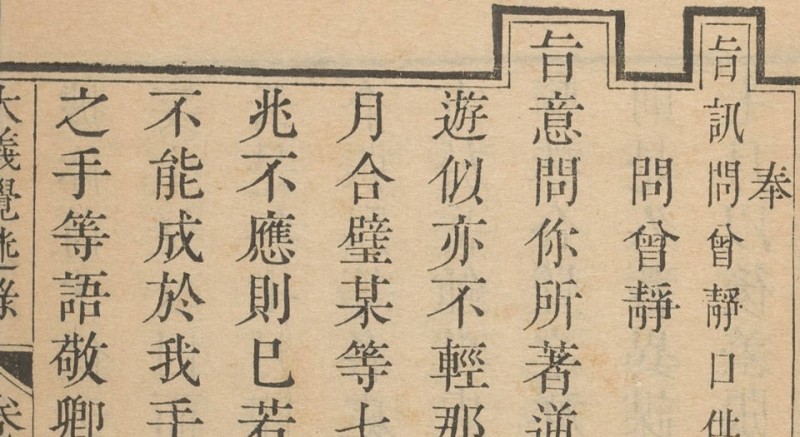 奉
旨訊問曾靜口供
問曾靜
旨意問你所著逆
遊似亦不輕那
月合璧某等七
兆不應則已若
不能成於我手
之手等語敬卿
大義覺迷錄